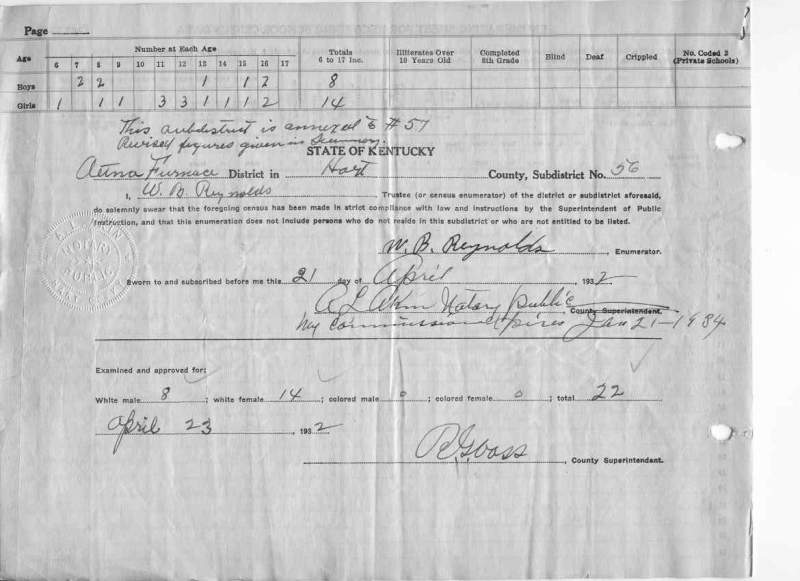 Page
Number at Each Age
Age 6 7 8 9 10 11 12 13 14 15 16 17 Totals 6 to 17 Inc. Illiterates Over 10 Years Old Completed 8th Grade Blind Deaf Crippled No. Coded 2 (Private Schools)
Boys 2 2 1 1 2 8
Girls 1 1 1 3 3 1 1 1 2 14
This subdistrict is annexed to #57
Revised figures given in Summary.
STATE OF KENTUCKY
Aetna Furnace District in Hart County, Subdistrict No. 56
I, W. B. Reynolds, Trustee (or census enumerator) of the district or subdistrict aforesaid,
do solemnly swear that the foregoing census has been made in strict compliance with law and instructions by the Superintendent of Public
Instruction, and that this enumeration does not include persons who do not reside in this subdistrict or who are not entitled to be listed.
W. B. Reynolds, Enumerator.
NOTARY
PUBLIC
Sworn to and subscribed before me this 21 day of April, 1932
Notary Public County Superintendent.
My Commission Expires Jan 21-1934
Examined and approved for:
White male 8; white female 14; colored male 0; colored female 0; total 22
April 23, 1932
County Superintendent.